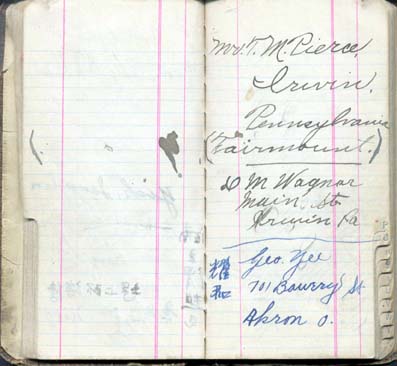 Mr. T. M. Pierce,
Irwin,
Pennsylvania
(Fairmount.)
D M Wagnor
Main St
Irwin Pa
Geo. Yee
701 Bowrry St
Akron O.